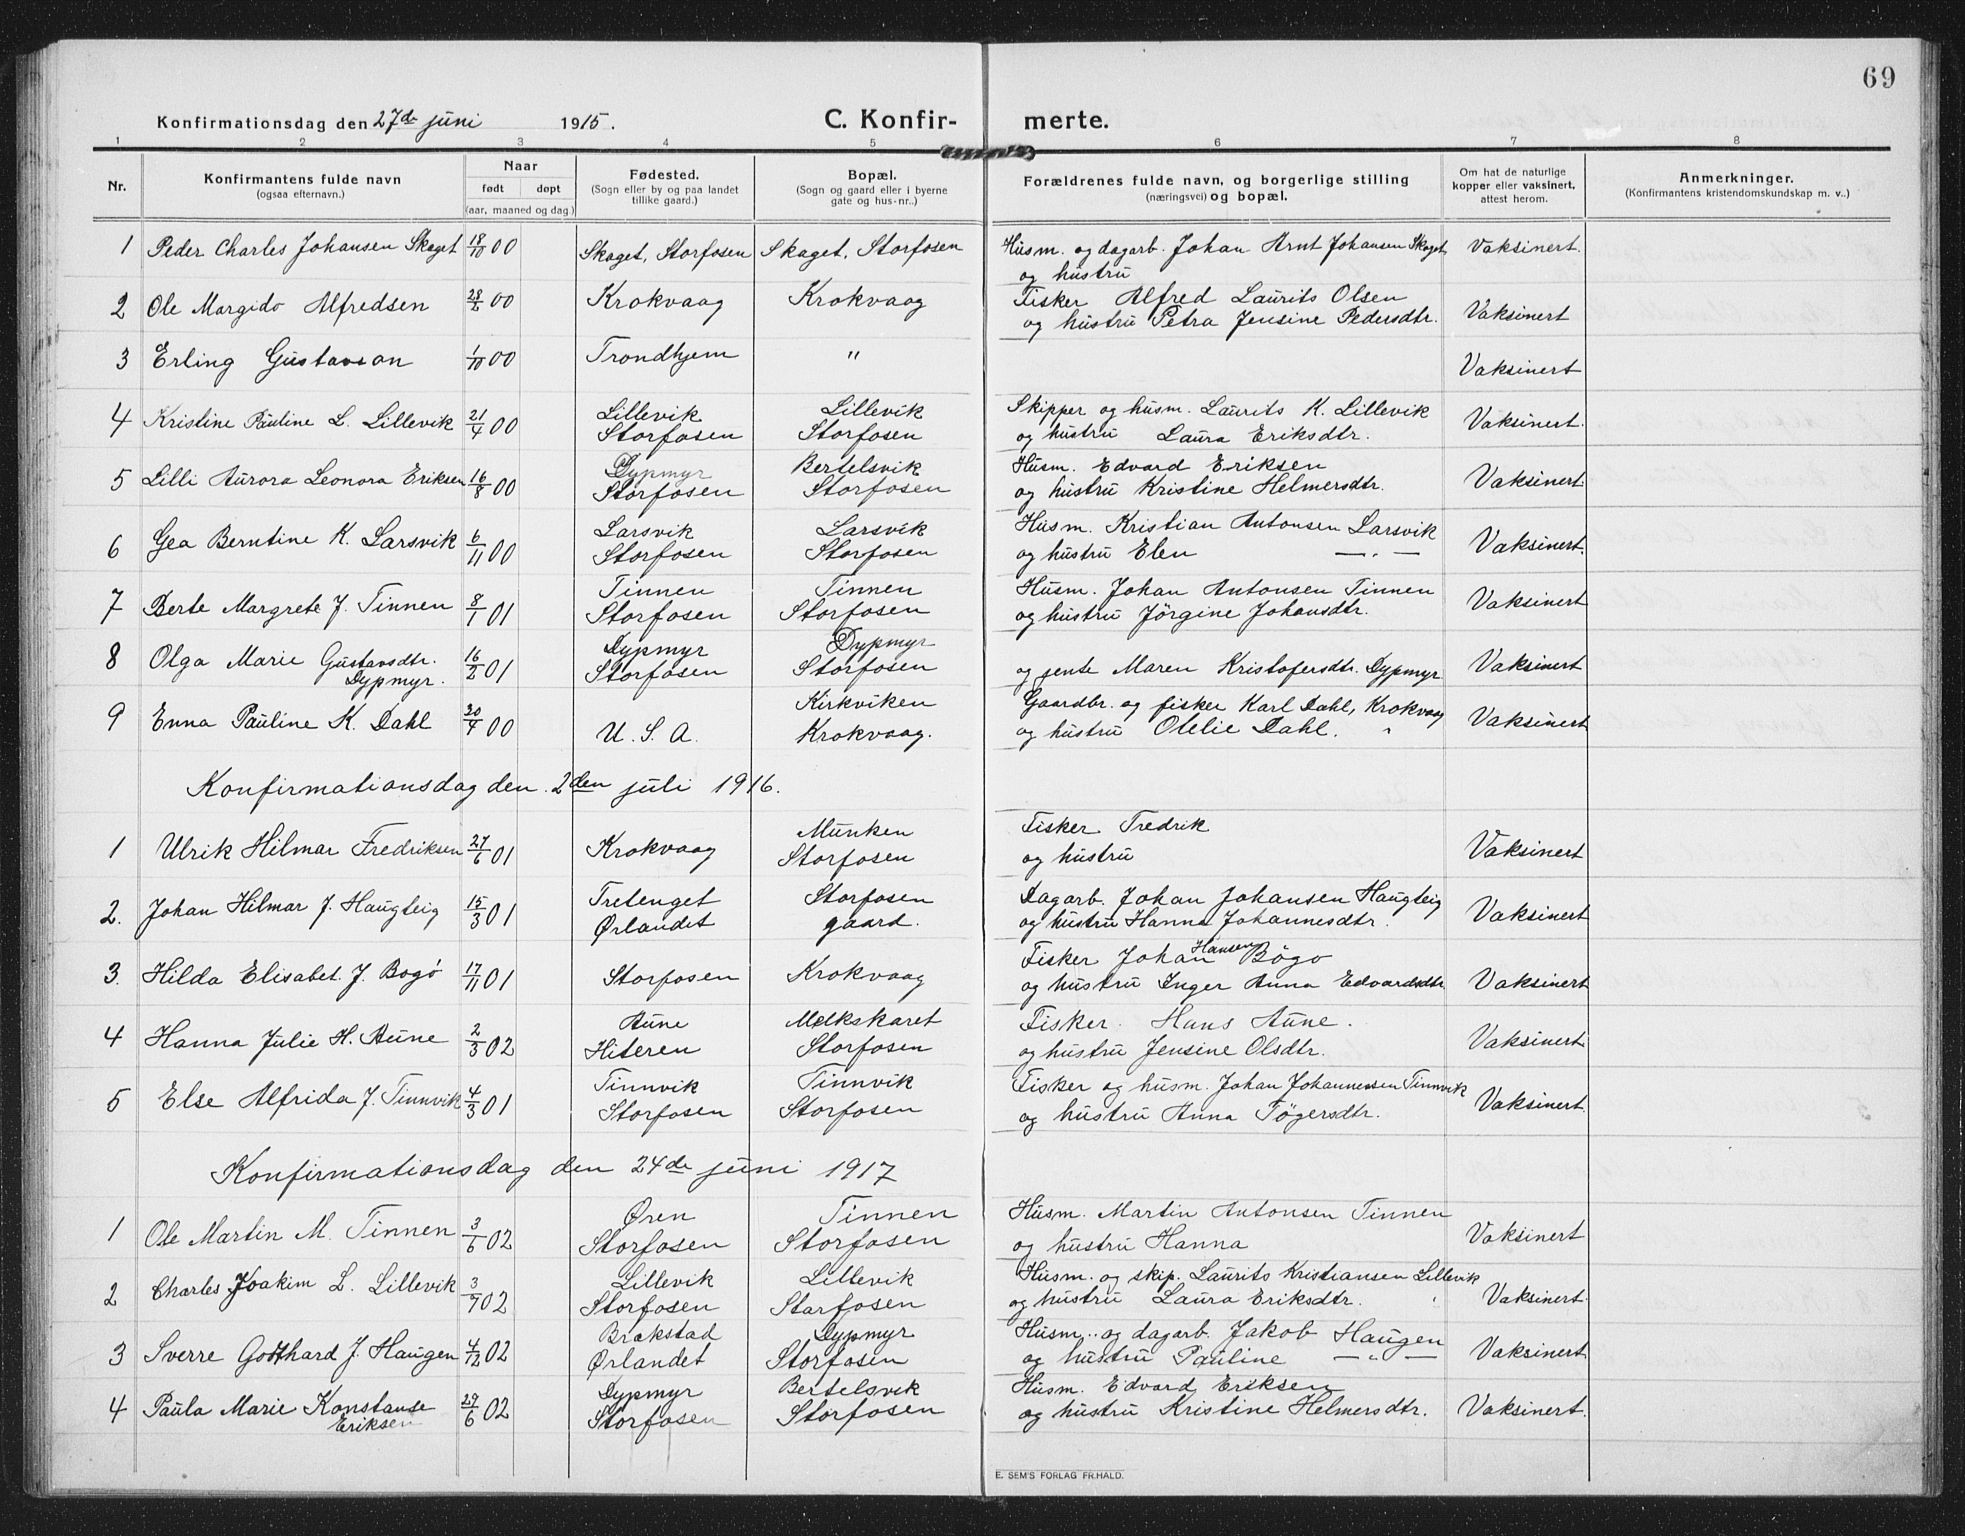 69
Konfirmationsdag den 27de juni 1915. C. Konfir- merte.
1 2 3 4 5 6 7 8
Nr. Konfirmantens fulde navn (ogsaa efternavn). Naar født døpt (aar, maaned og dag.) Fødested. (Sogn eller by og paa landet tillike gaard.) Bopæl. (Sogn og gaard eller i byerne gate og hus-nr..) Forældrenes fulde navn, og borgerlige stilling (næringsvei) og bopæl. Om hat de naturlige kopper eller vaksinert, attest herom. Anmerkninger. (Konfirmantens kristendomskundskap m. v..)
1 Peder Charles Johansen Skaget 18/10 00 Skaget, Storfosen Skaget, Storfosen Husm. og dagarb. Johan Arnt Johansen Skaget Vaksinert.
og hustru
2 Ole Margido Alfredsen 28/2 00 Krokvaag Krokvaag Fisker Alfred Laurits Olsen
og hustru Petra Jensine Pedersdtr. Vaksinert
3 Erling Gustavson 1/10 00 Trondhjem " Vaksinert
4 Kristine Pauline L. Lillevik 21/4 00 Lillevik Lillevik Skipper og husm. Laurits K. Lillevik Vaksinert.
Storfosen Storfosen og hustru Laura Eriksdtr.
5 Lilli Aurora Leonora Eriksen 16/8 00 Dypmyr Bertelsvik Husm. Edvard Eriksen Vaksinert.
Storfosen Storfosen og hustru Kristine Helmersdtr.
6 Gea Berntine K. Larsvik 6/11 00 Larsvik Larsvik Husm. Kristian Antonsen Larsvik Vaksinert.
Storfosen Storfosen og hustru Elen —"—
7 Berte Margrete J. Tinnen 8/1 01 Tinnen Tinnen Husm. Johan Antonsen Tinnen Vaksinert
Storfosen Storfosen og hustru Jörgine Johansdtr.
8 Olga Marie Gustavsdtr. 16/2 01 Dypmyr Dypmyr
Dypmyr. Storfosen Storfosen og jente Maren Kristofersdtr. Dypmyr Vaksinert
9 Enna Pauline K. Dahl 20/4 00 Kirkviken Gaardbr. og fisker Karl Dahl, Krokvaag Vaksinert
U. S. A. Krokvaag. og hustru Olelie Dahl. "
Konfirmationsdag den 2den juli 1916.
1 Ulrik Hilmar Fredriksen 27/6 01 Krokvaag Munken Fisker Fredrik Vaksinert
Storfosen og hustru
2. Johan Hilmar J. Haugteig 15/3 01 Tretenget Storfosen Dagarb. Johan Johansen Haugteig Vaksinert
Ørlandet gaard. og hustru Hanna Johannesdtr.
3. Hilda Elisabet J. Bogö 17/11 01 Storfosen Krokvaag Fisker Johan Hansen Bögo
og hustru Inger Anna Edvardsdtr Vaksinert
4 Hanna Julie H. Aune 2/3 02 Aune Melkskaret Fisker. Hans Aune. Vaksinert.
Hiteren Storfosen og hustru Jensine Olsdtr.
5 Else Alfrida J. Tinnvik 4/3 01 Tinnvik Tinnvik Fisker og husm. Johan Johannesen Tinnvik Vaksinert.
Storfosen Storfosen og hustru Anna Tögersdtr.
Konfirmationsdag den 24de juni 1917
1 Ole Martin M. Tinnen 3/6 02 Øren Tinnen Husm. Martin Antonsen Tinnen Vaksinert
Storfosen Storfosen og hustru Hanna
2 Charles Joakim L. Lillevik 3/7 02 Lillevik Lillevik Husm. og skip. Laurits Kristiansen Lillevik Vaksinert.
Storfosen Storfosen og hustru Laura Eriksdtr. "
3 Sverre Gotthard J. Haugen 4/12 02 Brekstad Dypmyr Husm. og dagarb. Jakob Haugen Vaksinert
Ørlandet Storfosen og hustru Pauline —"—
4 Paula Marie Konstanse 29/6 02 Dypmyr Bertelsvik Husm. Edvard Eriksen Vaksinert.
Eriksen Storfosen Storfosen og hustru Kristine Helmersdtr.
E. SEM'S FORLAG FR.HALD.